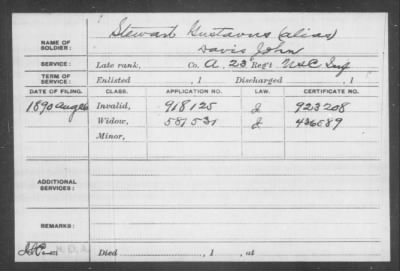 Stewart Gustavus (alias)
NAME OF SOLDIER: Davis John
SERVICE: Late rank, Co. A, 23" Reg't U S C Inf
TERM OF SERVICE: Enlisted , 1 Discharged , 1
DATE OF FILING. CLASS. APPLICATION NO. LAW. CERTIFICATE NO.
1890 Aug Invalid, 918125 J 923208
Widow, 581531 J 436589
Minor,
ADDITIONAL SERVICES:
REMARKS:
Died , 1 , at